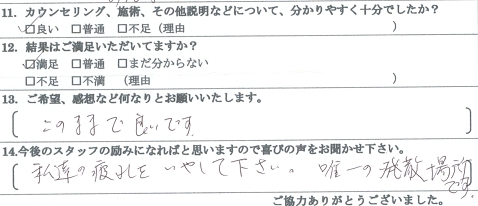 11. カウンセリング、施術、その他説明などについて、分かりやすく十分でしたか?
☑良い □普通 □不足 (理由 )
12. 結果はご満足いただいてますか?
☑満足 □普通 □まだ分からない
□不足 □不満 (理由 )
13. ご希望、感想など何なりとお願いいたします。
このままで良いです
14.今後のスタッフの励みになればと思いますので喜びの声をお聞かせ下さい。
私達の疲れをいやして下さい。 唯一の発散場所です。
ご協力ありがとうございました。